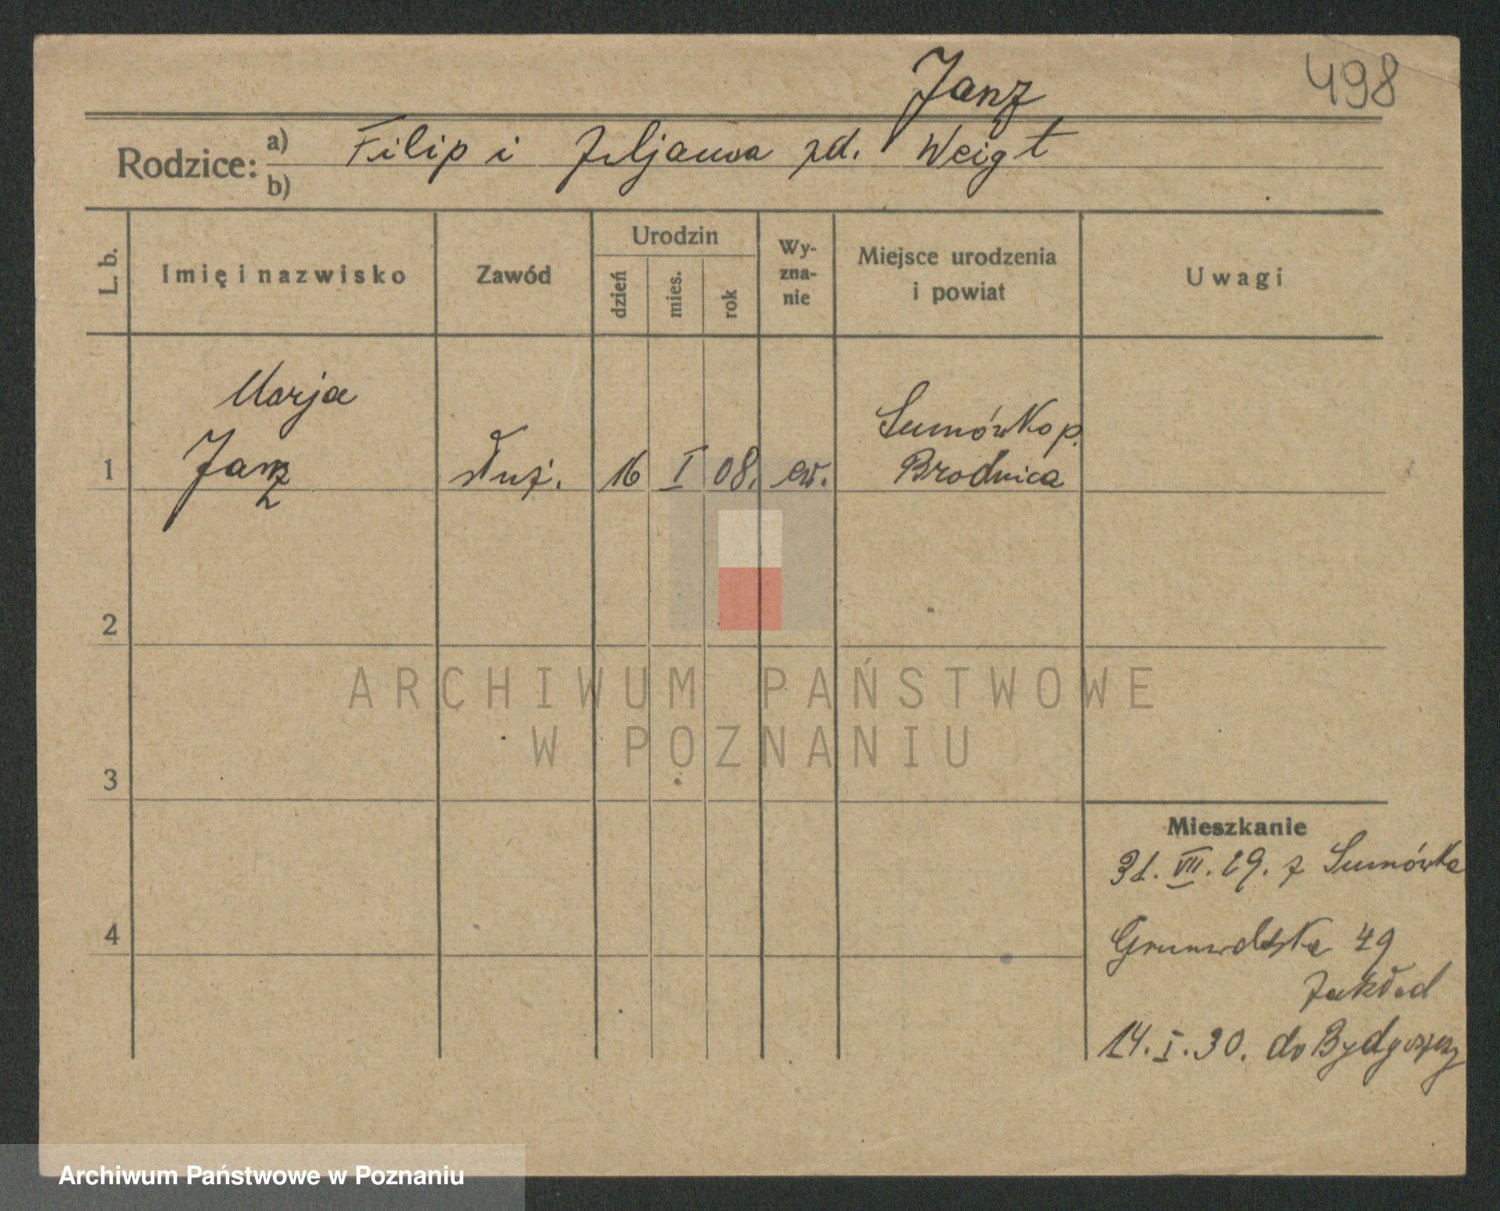 Janz
498
Rodzice: a) Filip i Juljanna zd. Weigt
b)
L. b.
Imię i nazwisko
Zawód
Urodzin
dzień
mies.
rok
Wy-
zna-
nie
Miejsce urodzenia
i powiat
Uwagi
Marja
Janz
1
służ.
16
I
08.
ew.
Sumówko p.
Brodnica
2
3
4
ARCHIWUM PAŃSTWOWE
W POZNANIU
Mieszkanie
31. VII. 29. z Sumówka
Grunwaldzka 49
Zakład
14. I. 30. do Bydgoszczy
Archiwum Państwowe w Poznaniu